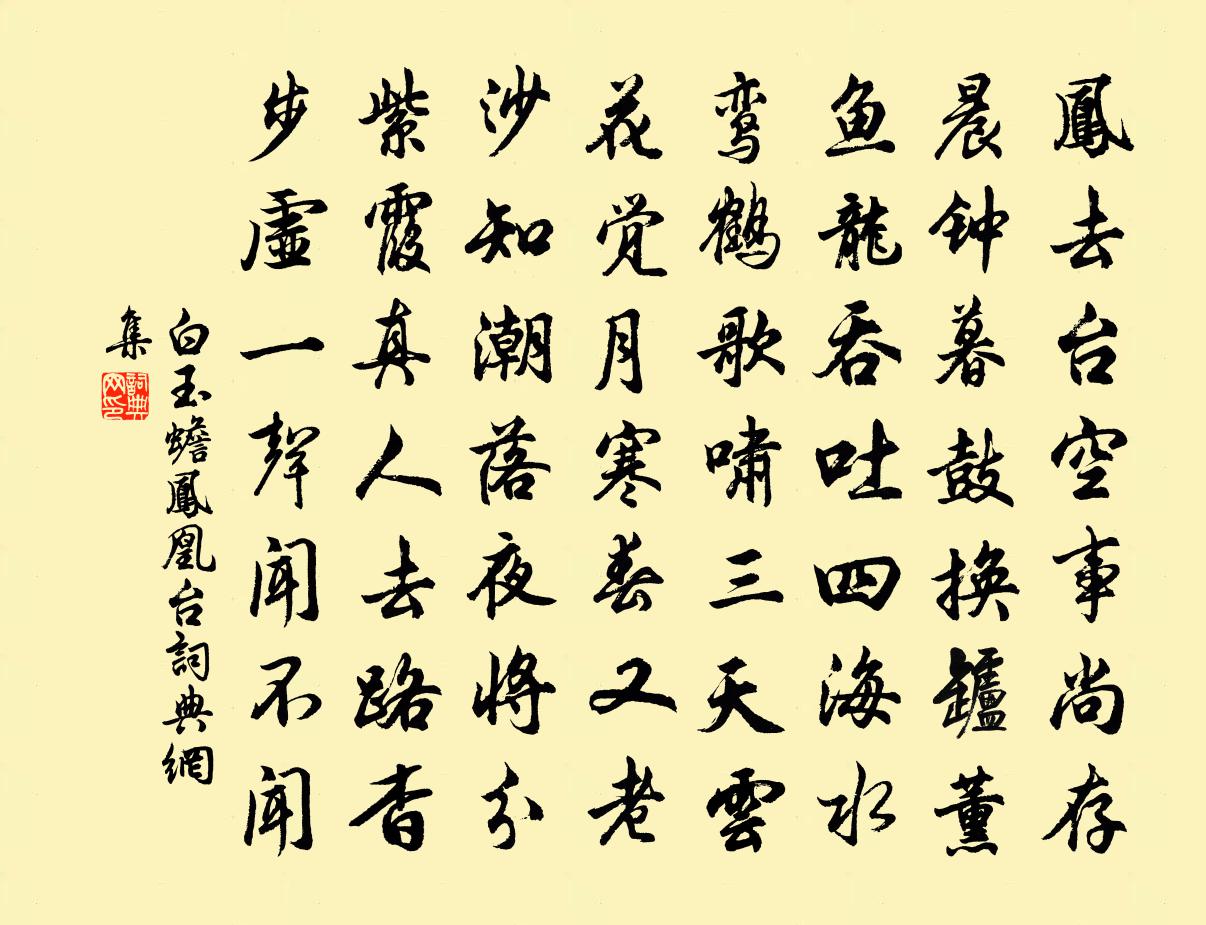 鳳去台空事尚存
晨钟暮鼓换鑪薰
鱼龍吞吐四海水
鸾鶴歌啸三天雲
花觉月寒春又老
沙知潮落夜將分
紫霞真人去路杳
步虛一聲闻不闻
白玉蟾鳳凰台詞典網
集
詞典网印